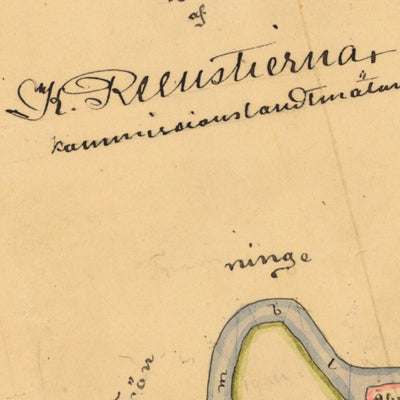 af
K. Reenstierna,
kommissionslandtmätar
ninge
b
l
m
ön